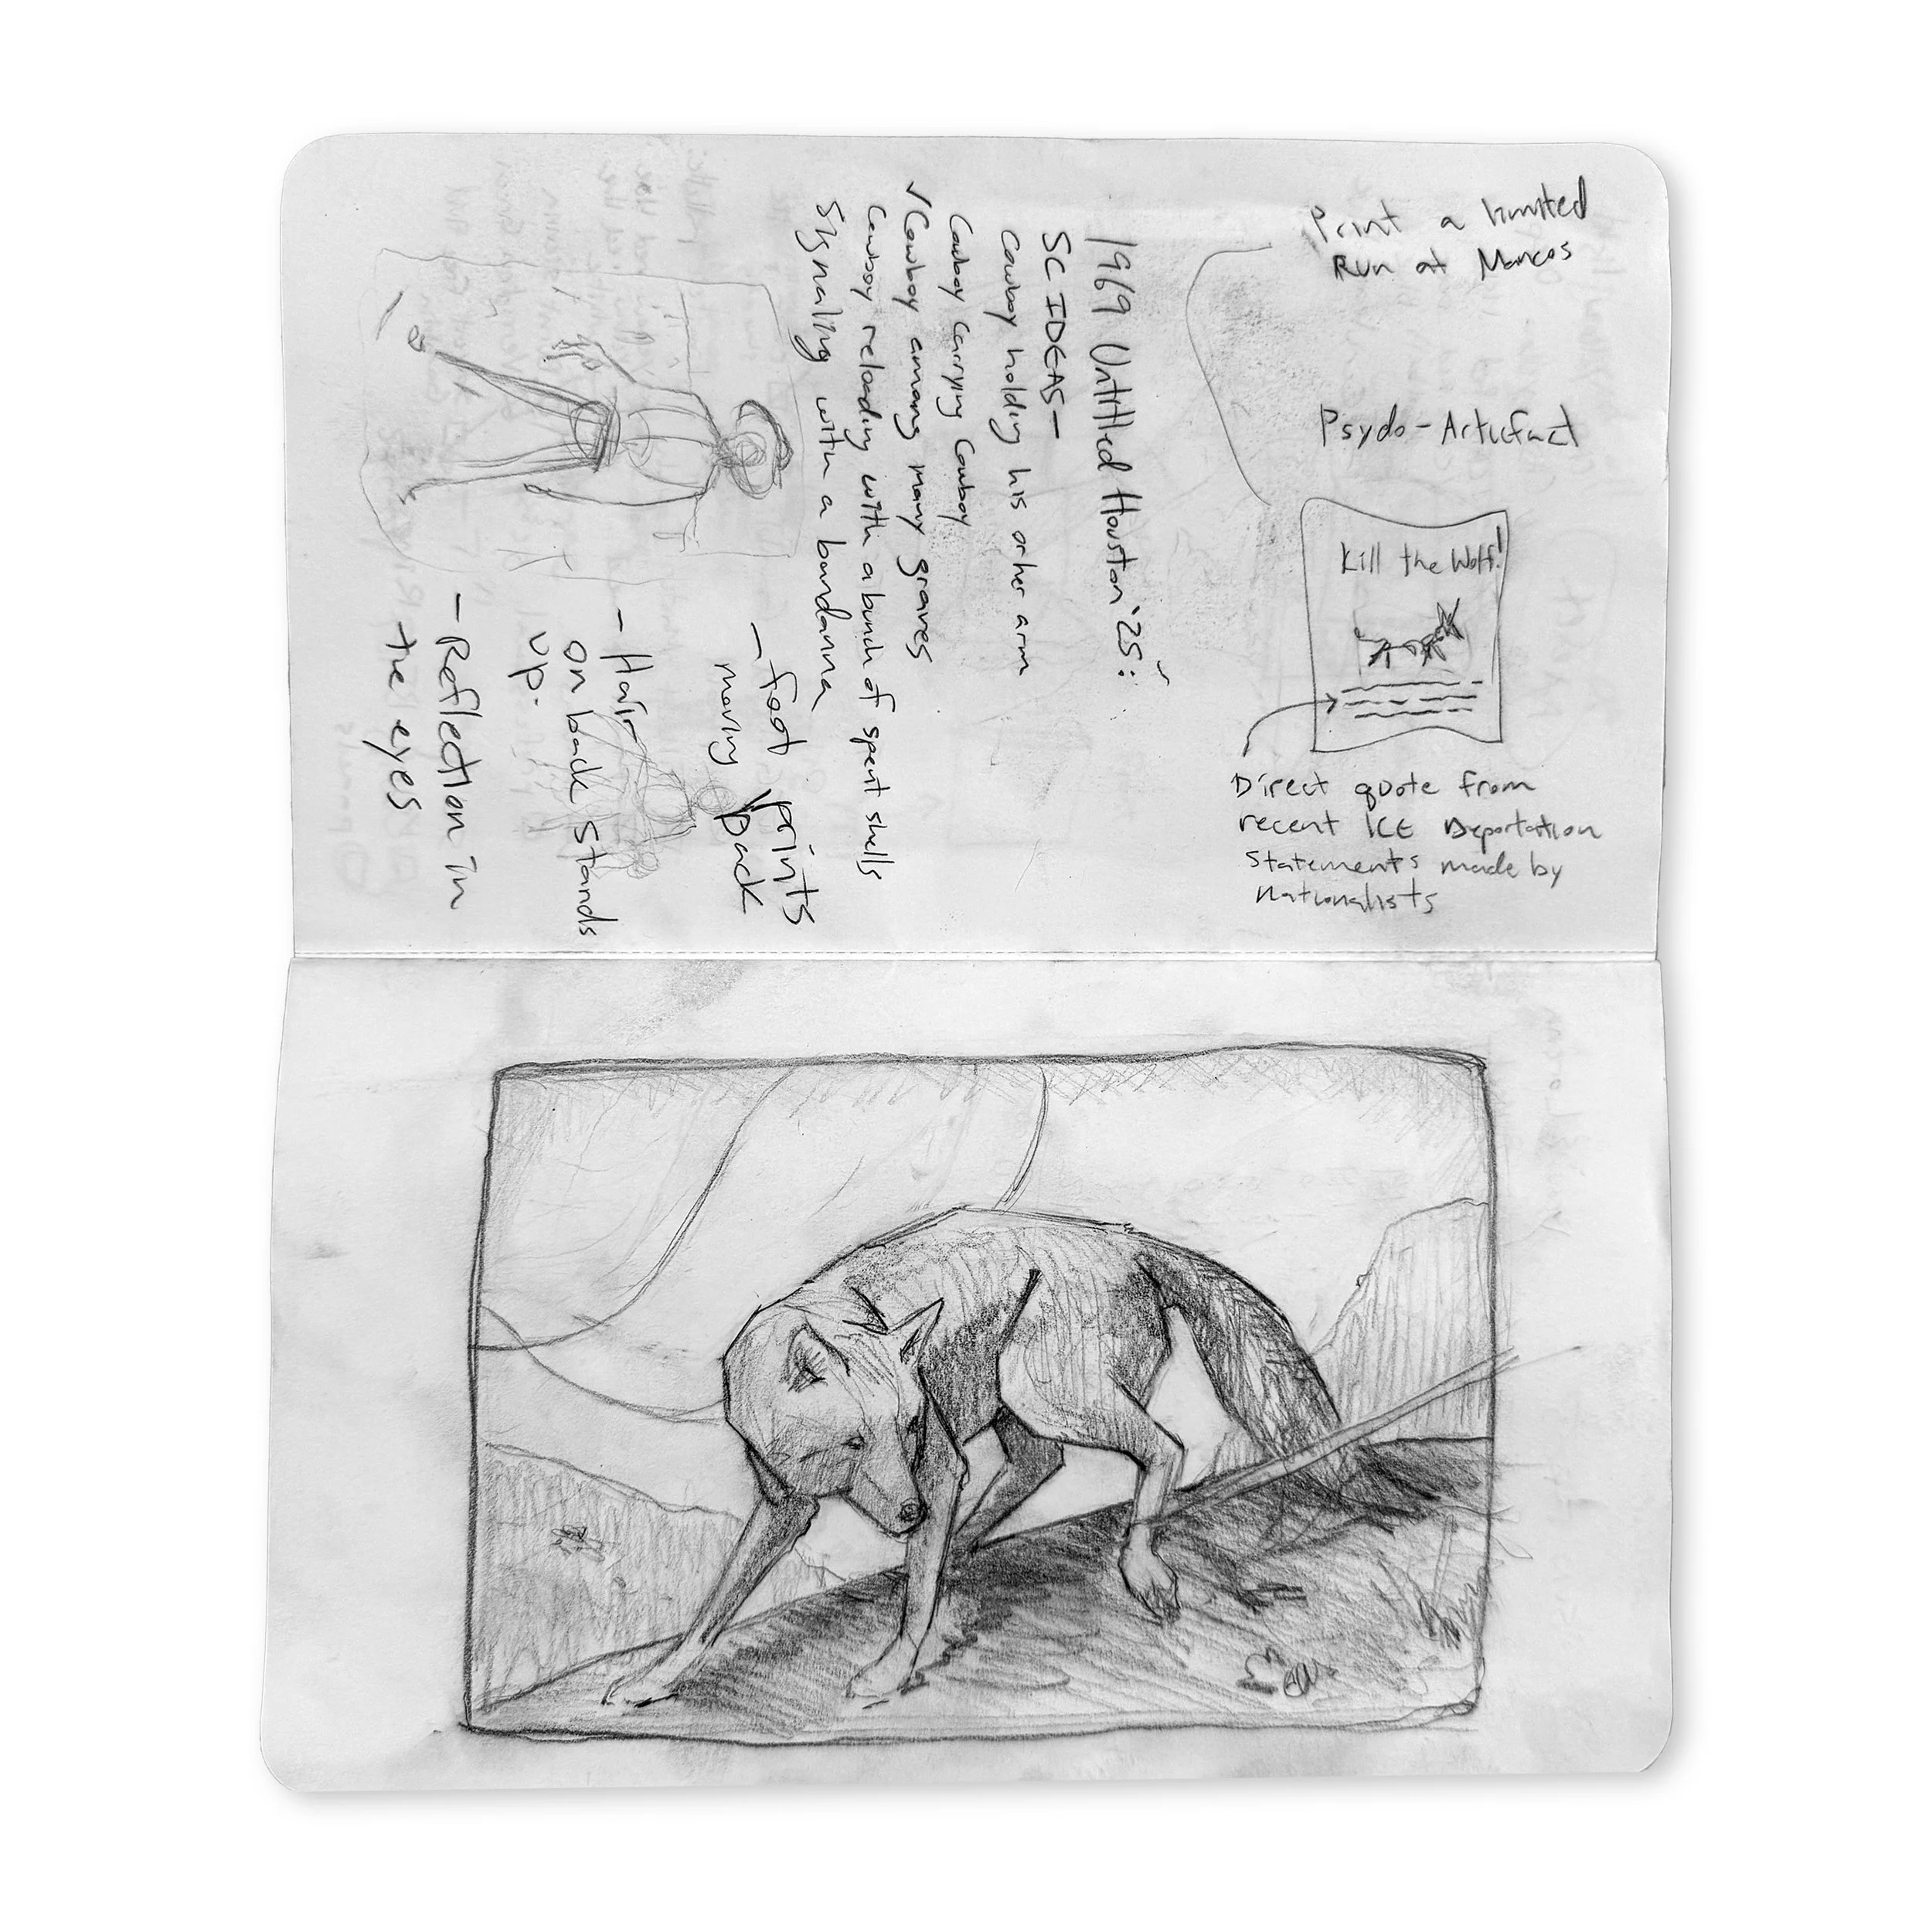 Print a limited
Run at Marcos
Psydo-Artifact
Kill the Wolf!
Direct quote from
recent ICE Deportation
Statements made by
Nationalists
1969 Untitled Houston '25:
SC IDEAS—
Cowboy holding his other arm
Cowboy Carrying Cowboy
✓Cowboy among many graves
Cowboy reloading with a bunch of spent shells
Signaling with a bandanna
- foot prints
moving back
- Hair
on back stands
up.
- Reflection in
the eyes